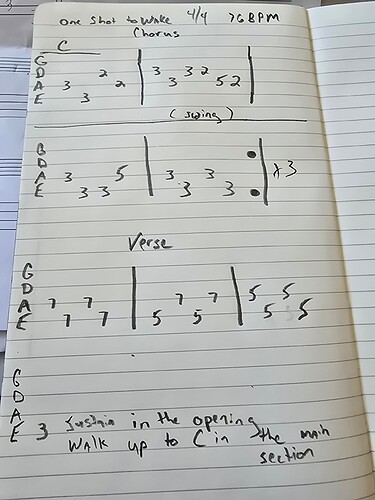 One Shot to Wake 4/4 76 BPM
Chorus
C
G
D 2 3 3 2
A 3 2 3 5 2
E 3
(swing)
G
D
A 3 5 3 3
E 3 3 3 3 x3
Verse
G
D
A 7 7 7 7 5 5
E 7 7 5 5 5 5
G
D
A
E 3 Sustain in the opening
Walk up to C in the main
section